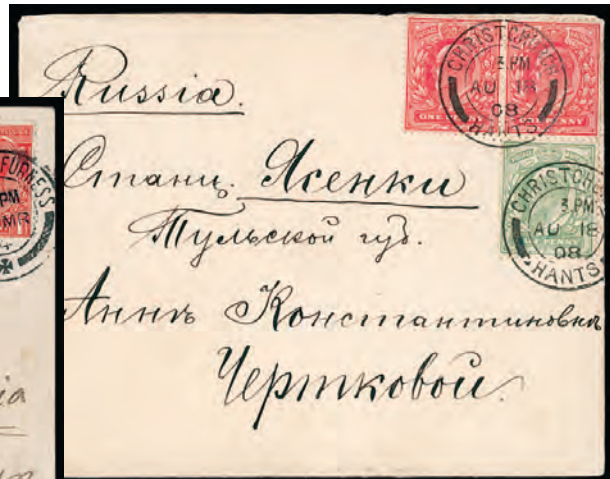 Russia.
Станц. Ясенки
Тульской губ.
Аннѣ Константиновнѣ
Чертковой.
ONE PENNY
CHRISTCHURCH
3.PM
AU 18
08
HANTS
CHRISTCHURCH
3.PM
AU 18
08
HANTS
FURNESS
PM